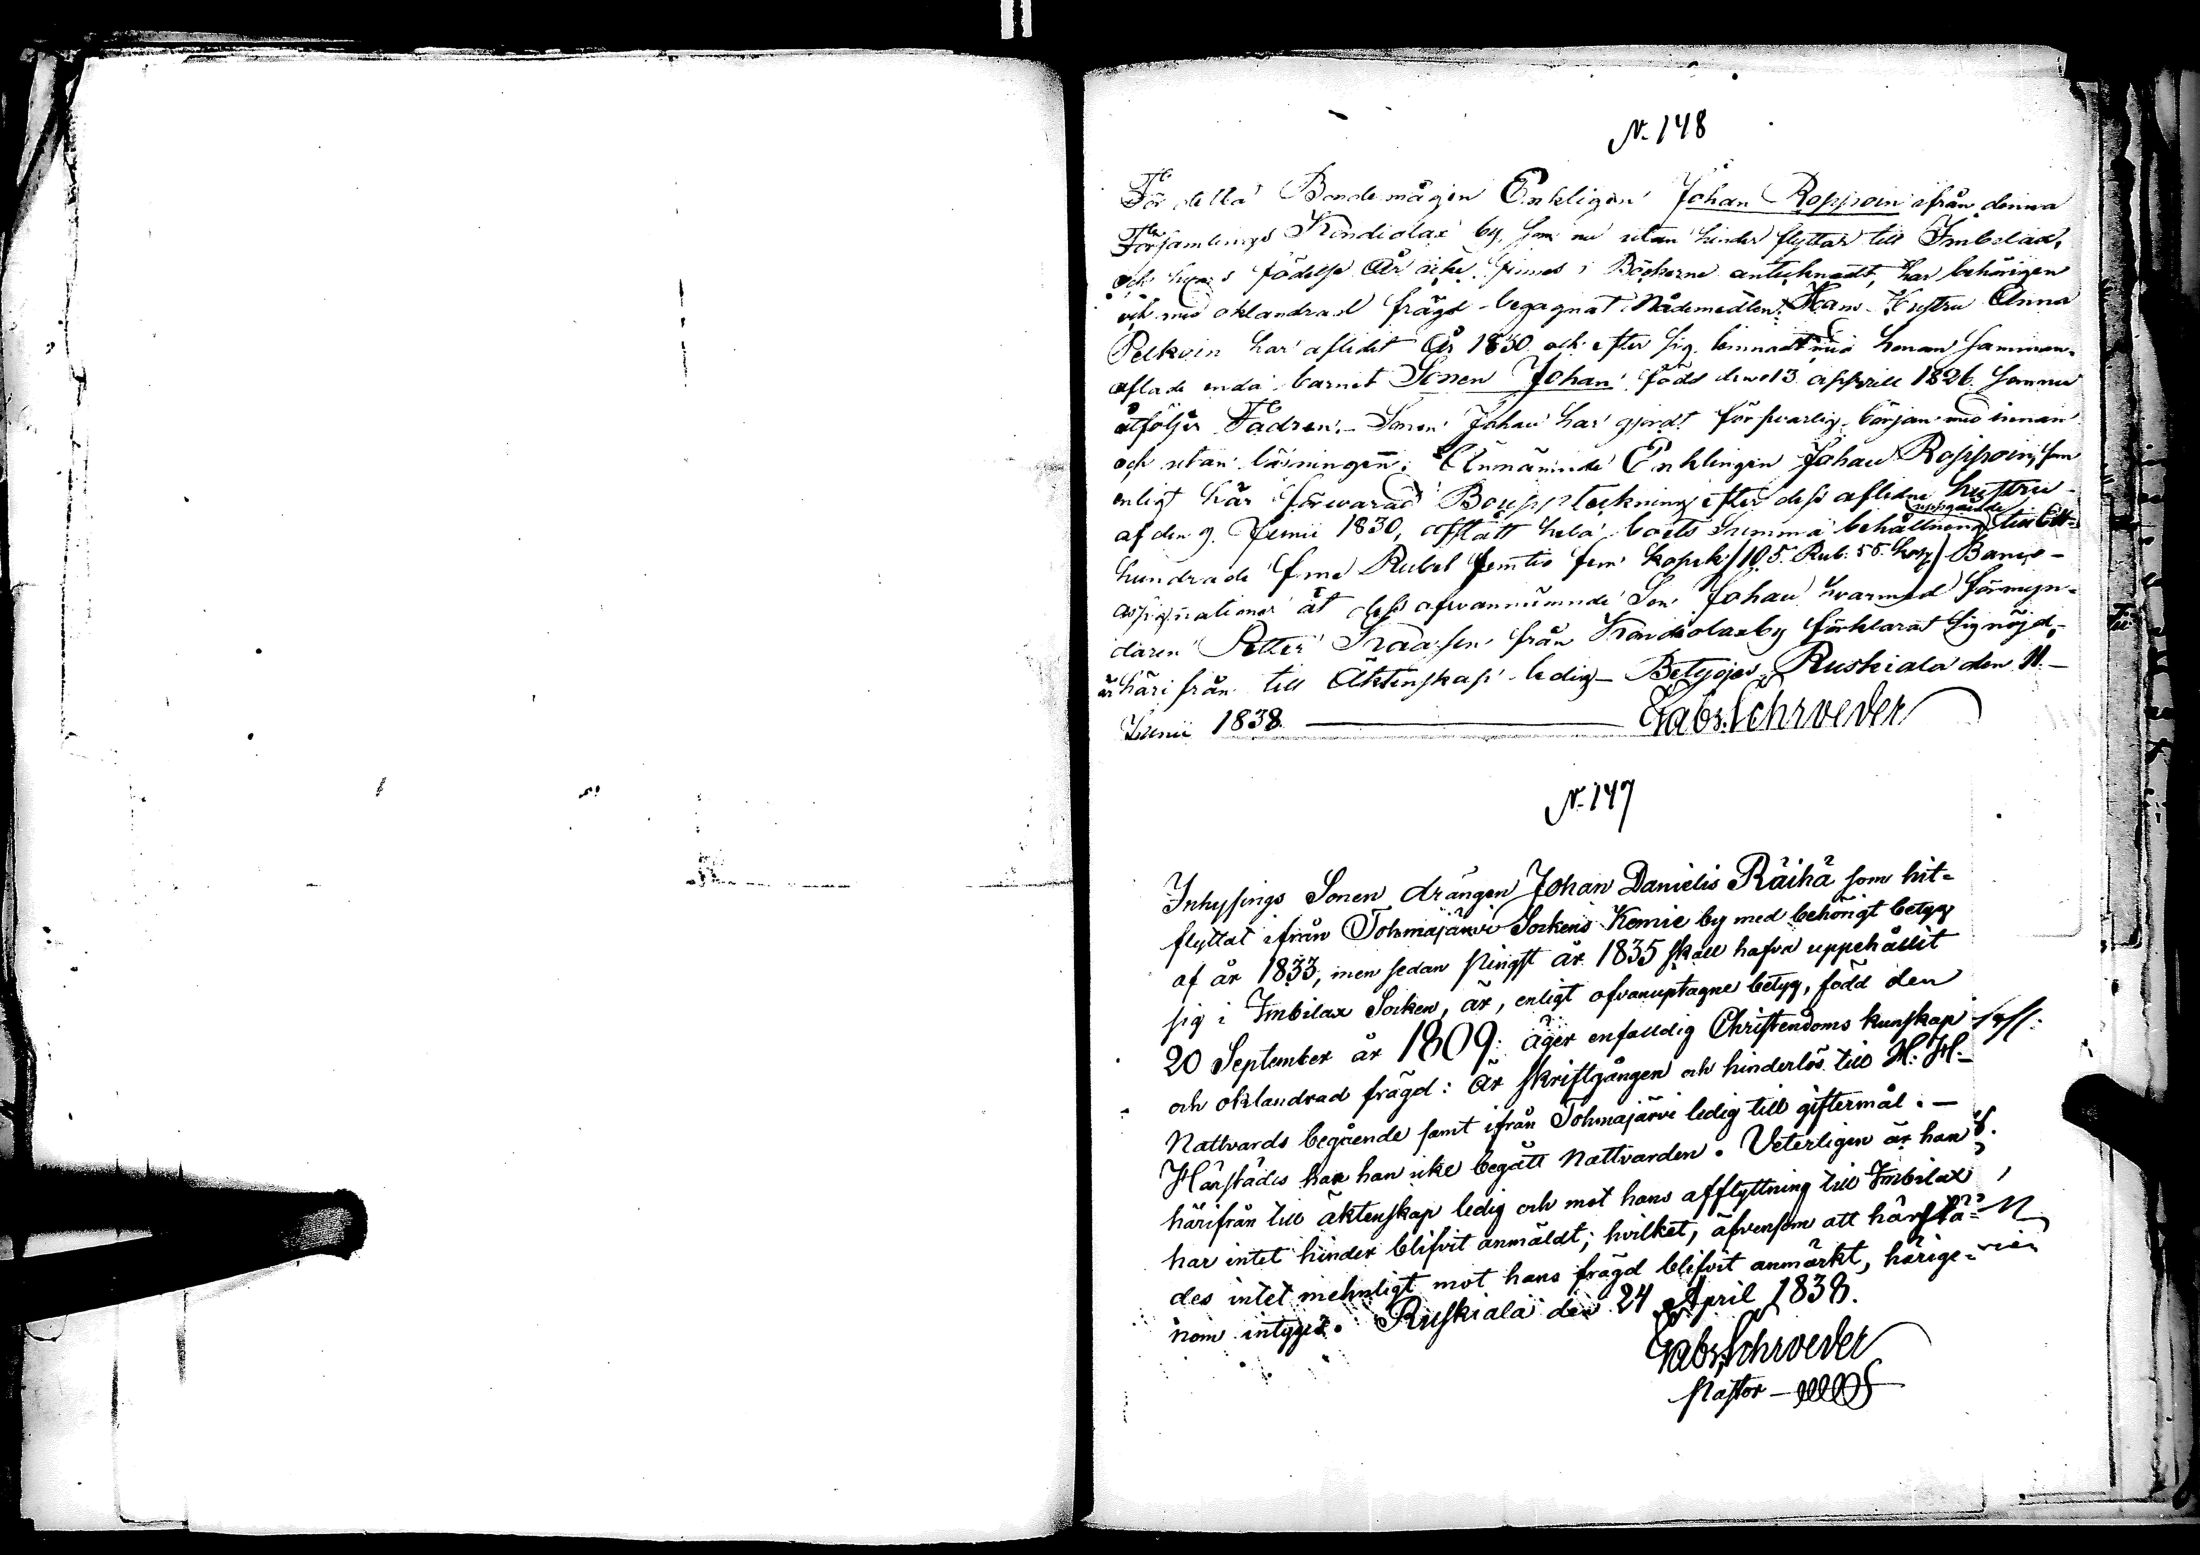 N. 148
För detta Bondemågen Enklingen Johan Roppoin ifrån denna
Församlings Kondiolax by, som nu utan hinder flyttar till Imbelax,
och hvars födelse År icke finnes i Böckerne antecknadt, har behörigen
och med oklandrad frägd begagnat Nådemedlen. Hans Hustru Anna
Pelkoin har aflidit År 1830 och efter sig lemnadt med honom samman-
aflade enda barnet Sonen Johan född den 13 appril 1826 som nu
åtföljer Fadren. Sonen Johan har gjordt försvarlig början med innan
och utan läsningen. Ännämnde Enklingen Johan Roppoin, som
enligt här förwarad Bouppteckning efter dess aflidne hustru
af den 9 Junii 1830, afstått hela boets Summa behållning uppgående till Ett-
hundrade fem Rubel femtio fem kopek /105 Rub. 55 kop/ Banco-
assignationer åt dess ofvannämnde Son Johan hvarmed förmyn-
daren Petter Kraasen från Kondiolax by förklarat sig nöjd,
är härifrån till Äktenskap ledig. Betygas, Ruskiala den 11
Junii 1838 Gabr. Schroeder
N. 147
Inhysings Sonen drängen Johan Danielis Räihä som hit-
flyttat ifrån Tohmajärvi Sockens Kemie by med behörigt betyg
af år 1833, men sedan Pingst år 1835 skall hafva uppehållit
sig i Imbilax Socken, är, enligt ofvanuptagne betyg, född den
20 September år 1809: äger enfalldig Christendoms kunskap
och oklandrad frägd: är skriftgången och hinderlös till H: H:
Nattvards begående samt ifrån Tohmajärvi ledig till giftermål. —
Härstädes har han icke begått Nattvarden. Veterligen är han
härifrån till äktenskap ledig och mot hans afflyttning till Imbilax
har intet hinder blifvit anmäldt; hvilket, äfvensom att härstä-
des intet mehnligt mot hans frägd blifvit anmärkt, härige-
nom intygas. Ruskiala den 24 April 1838.
Gabr. Schroeder
Pastor